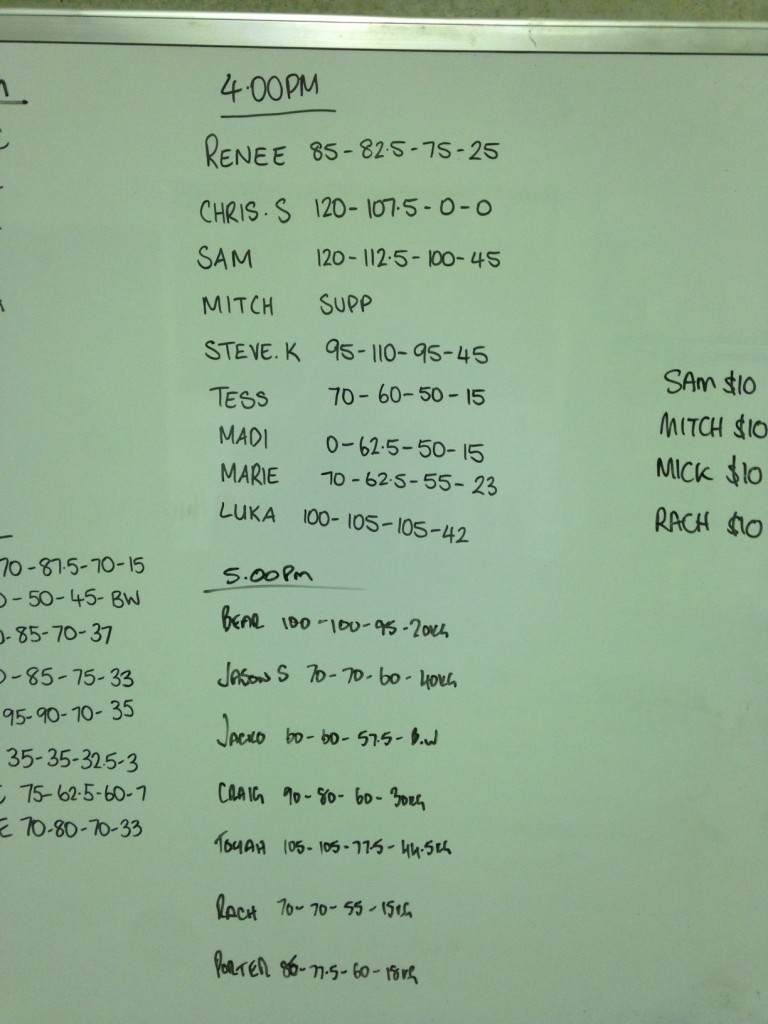 4.00PM
RENEE 85-82.5-75-25
CHRIS.S 120-107.5-0-0
SAM 120-112.5-100-45
MITCH SUPP
STEVE.K 95-110-95-45
TESS 70-60-50-15
MADI 0-62.5-50-15
MARIE 70-62.5-55-23
LUKA 100-105-105-42
5.00PM
BEAR 100-100-95-20KG
JASON S 70-70-60-40KG
JACKO 60-60-57.5-B.W
CRAIG 90-80-60-30KG
TOMAH 105-105-77.5-44.5KG
RACH 70-70-55-15KG
PORTER 86-77.5-60-18KG
70-87.5-70-15
0-50-45-BW
0-85-70-37
0-85-75-33
95-90-70-35
35-35-32.5-3
75-62.5-60-7
E 70-80-70-33
SAM $10
MITCH $10
MICK $10
RACH $10